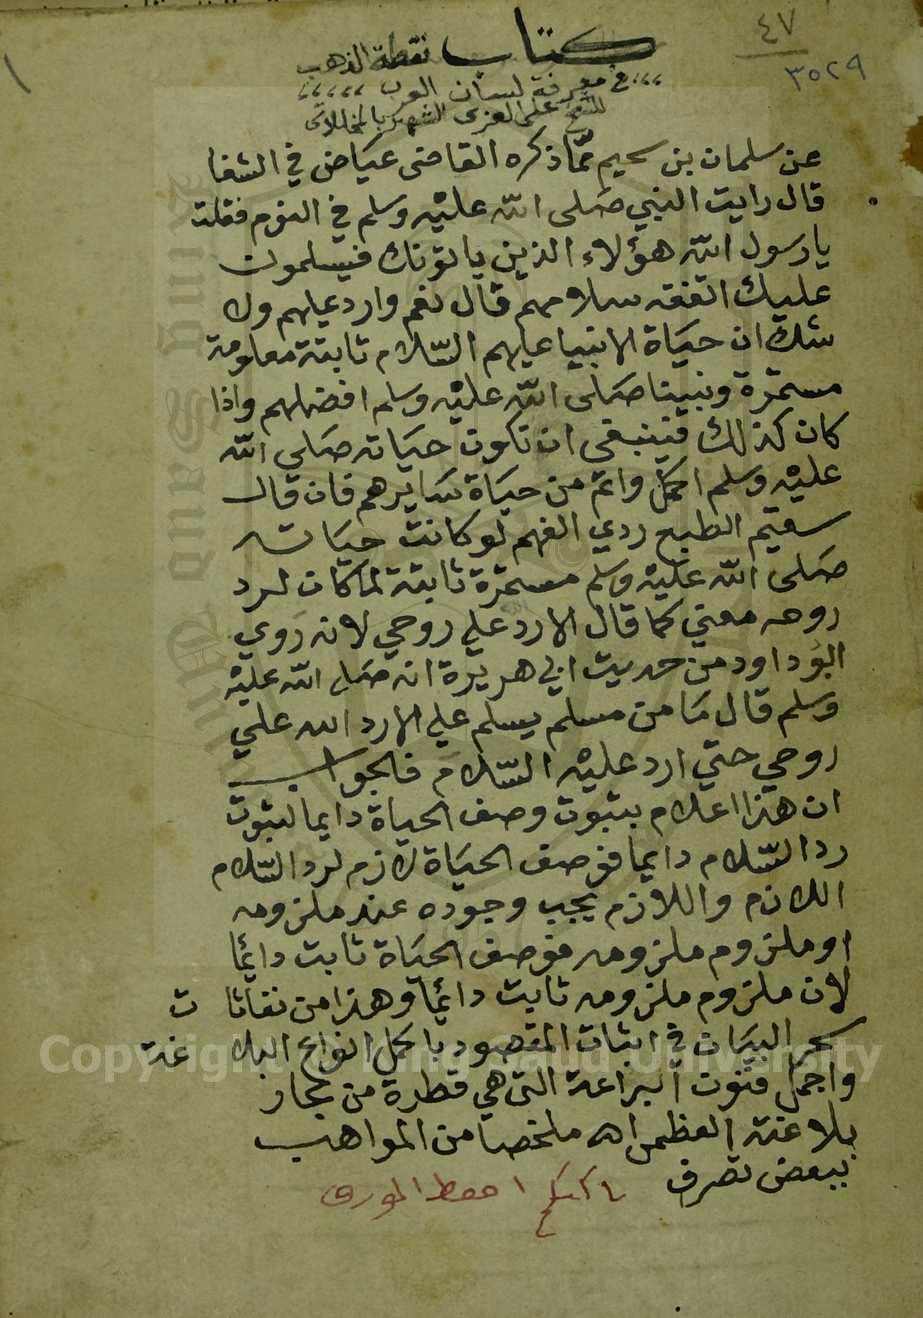 ٤٧
٣٥٢٩
١
كتاب نقطة الذهب
في معرفة لسان العرب
للشيخ علي العزي الشهير بالمخللاتي
عن سلمان بن سحيم مما ذكره القاضى عياض في الشفا
قال رايت النبي صلى الله عليه وسلم في النوم فقلت
يا رسول الله هؤلاء الذين ياتونك فيسلمون
عليك اتفقه سلامهم قال نعم وارد عليهم ولا
شك ان حياة الانبيا عليهم السلام ثابتة معلومة
مستمرة ونبينا صلى الله عليه وسلم افضلهم واذا
كان كذلك فينبغى ان تكون حياته صلى الله
عليه وسلم اكمل واتم من حياة سايرهم فان قال
سقيم الطبع ردي الفهم لو كانت حياته
صلى الله عليه وسلم مستمرة ثابتة لما كان لرد
روحه معني كما قال الا رد علي روحي لانه روي
ابو داود من حديث ابي هريرة انه صلى الله عليه
وسلم قال ما من مسلم يسلم علي الا رد الله علي
روحي حتي ارد عليه السلام فالجواب
ان هذا اعلام بثبوت وصف الحياة دايما لثبوت
رد السلام دايما فوصف الحياة لازم لرد السلام
اللازم واللازم يجب وجوده عند ملزومه
او ملزوم ملزومه فوصف الحياة ثابت دائما
لان ملزوم ملزومه ثابت دائما وهذا من نفاثات
سحر البيان في اثبات المقصود باكمل انواع البلاغة
واجمل فنون البراعة التى هي قطرة من بحار
بلاغته العظمى اه ملخصا من المواهب
ببعض تصرف
Copyright © King Saud University